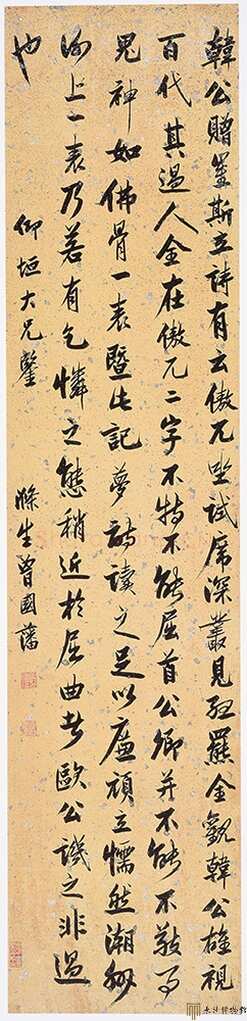 韓公贈崔斯立詩有云傲兀坐試席深叢見孤羆余觀韓公雄視
百代其過人全在傲兀二字不特不能屈首公卿并不能不敬事
鬼神如佛骨一表暨此記夢詩讀之足以廉頑立懦然潮州
謝上一表乃若有乞憐之態稍近於屈曲者歐公譏之非過
也
仰垣大兄鑒
滌生曾國藩